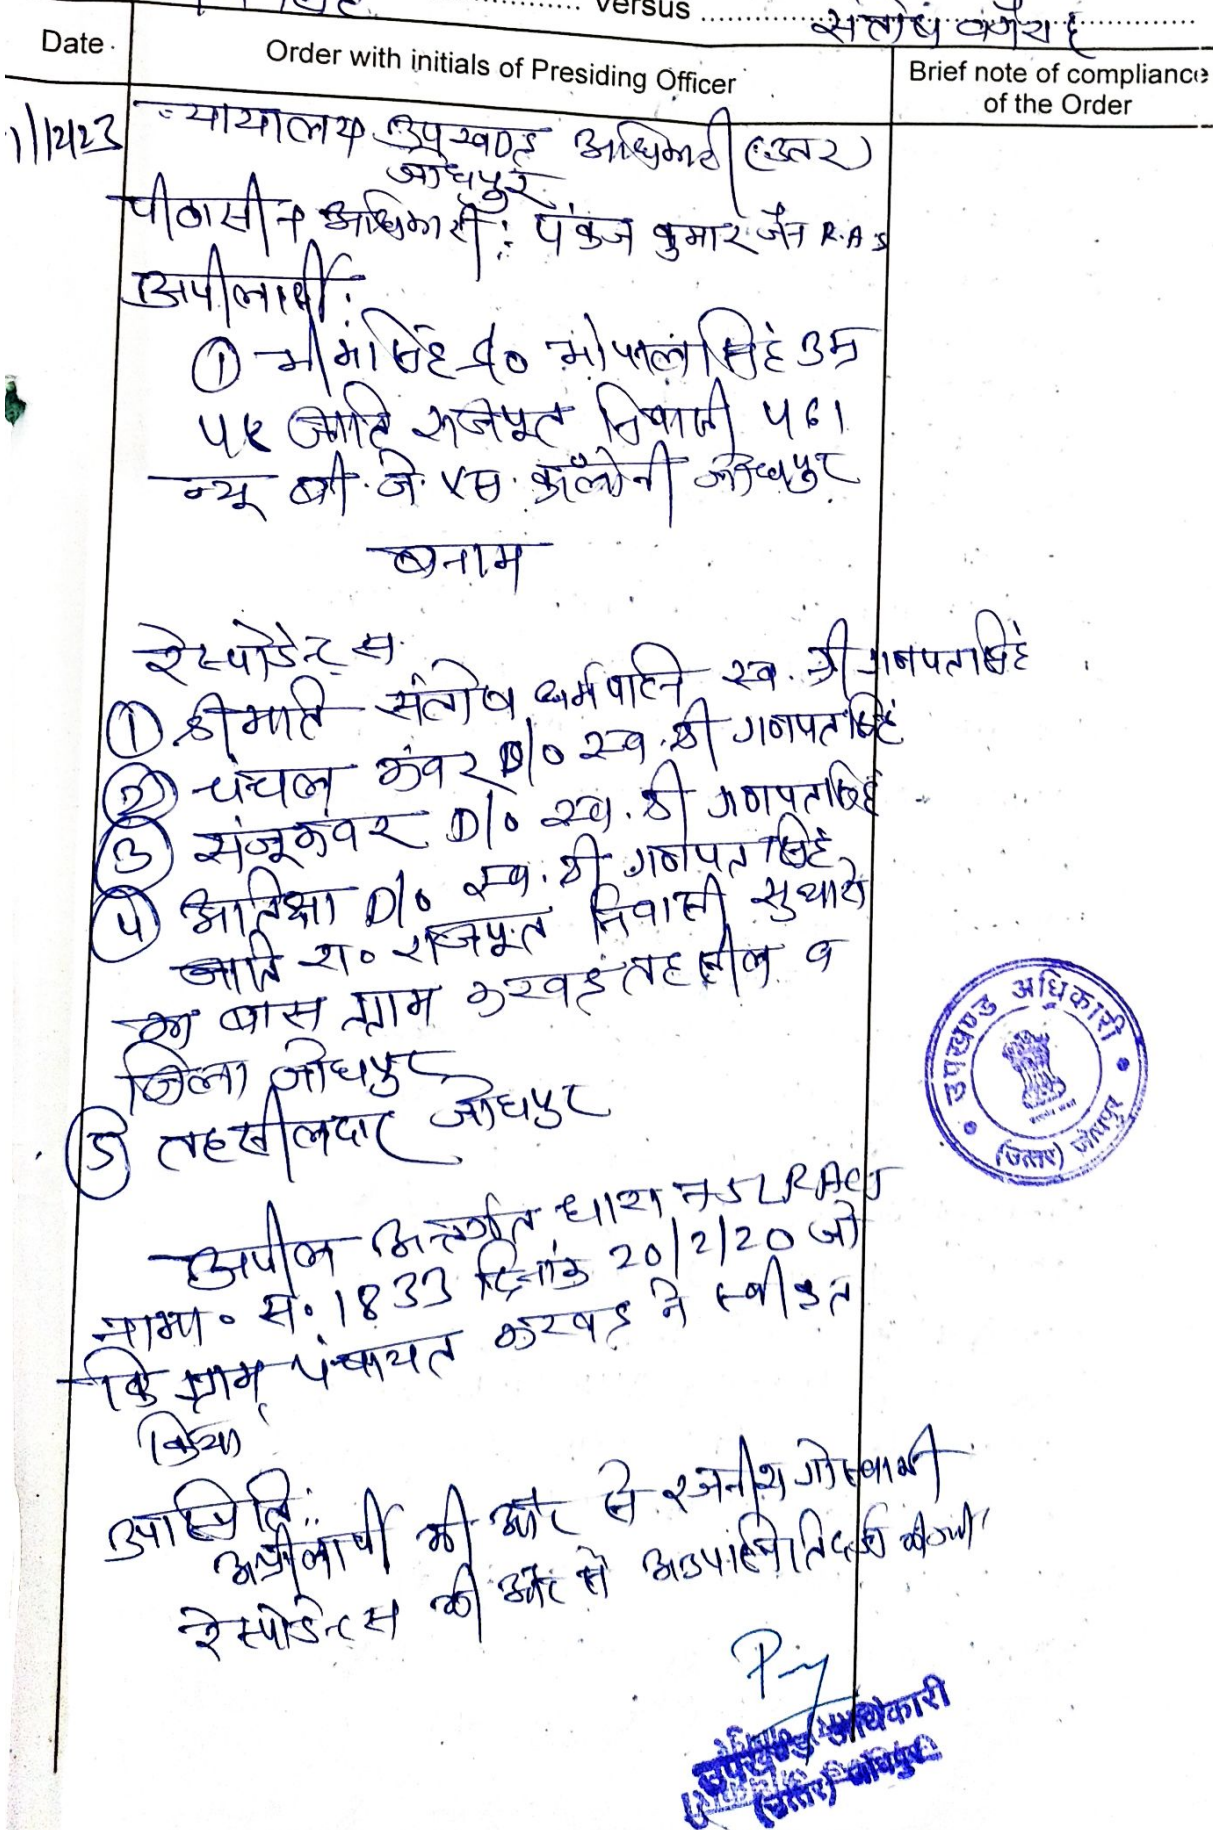 Versus
संतोष वगैराह
Date
Order with initials of Presiding Officer
Brief note of compliance
of the Order
1/12/23
न्यायालय उपखण्ड अधिकारी (उत्तर)
जोधपुर
पीठासीन अधिकारी: पंकज कुमार जैन R.A.S
अपीलार्थी:
① भीमसिंह S/o भोपाल सिंह उम्र
45 जाति राजपूत निवासी 461
न्यू बी. जे. एस. कॉलोनी जोधपुर
बनाम
रेस्पोडेन्टस
① श्रीमति संतोष धर्मपत्नि स्व. श्री गणपतसिंह
② चंचल कंवर D/o स्व. श्री गणपतसिंह
③ संजूकंवर D/o स्व. श्री गणपतसिंह
④ D/o स्व. श्री गणपत सिंह
जाति रा० राजपूत निवासी सुथारो
का बास ग्राम करवड़ तहसील व
जिला जोधपुर
⑤ तहसीलदार जोधपुर
अपील अन्तर्गत धारा 75 LR Act
नामा० सं. 1833 दिनांक 20/2/20 जो
कि ग्राम पंचायत करवड़ ने स्वीकृत
किया
उपस्थिति:
अपीलार्थी की ओर से रजनीश गोस्वामी
रेस्पोडेन्टस की ओर से अनुपस्थिति दर्ज की गयी
उपखण्ड अधिकारी
(उत्तर) जोधपुर
उपखण्ड अधिकारी
(उत्तर) जोधपुर